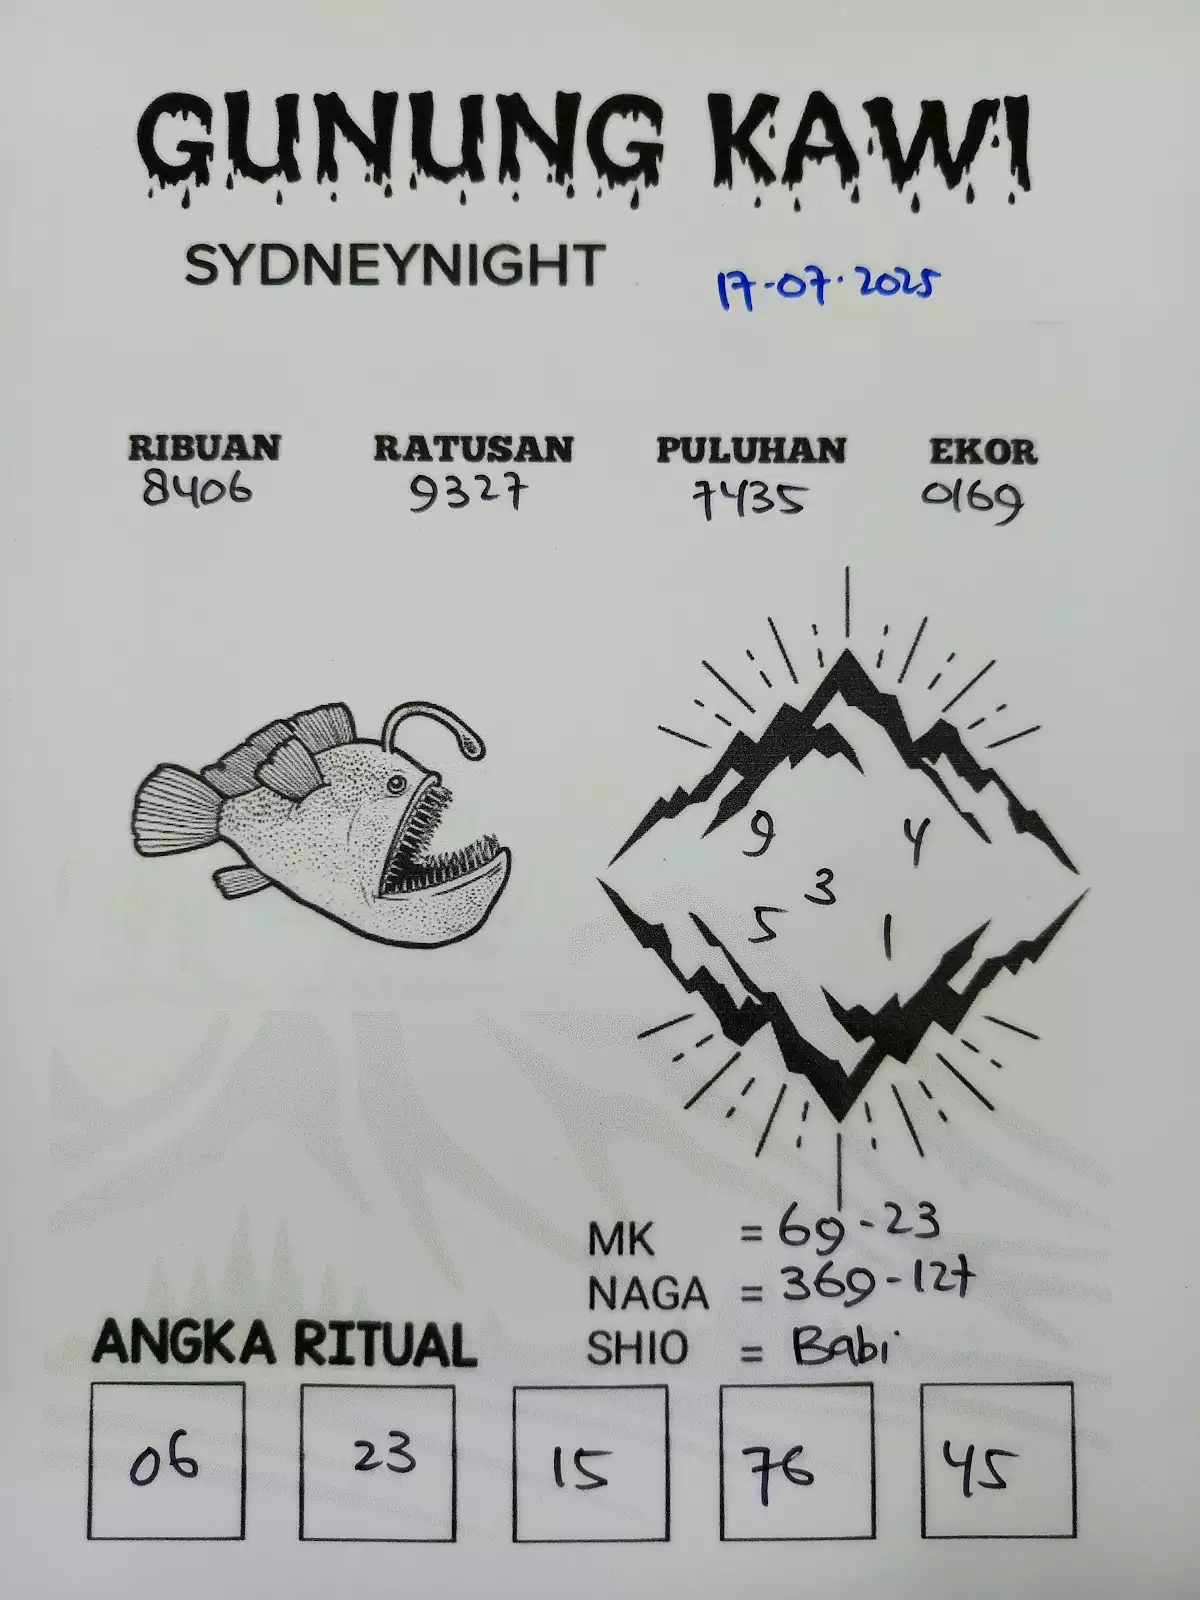 GUNUNG KAWI
SYDNEYNIGHT 17-07-2025
RIBUAN RATUSAN PULUHAN EKOR
8406 9327 7435 0169
9 4
3
5 1
MK = 69-23
NAGA = 369-127
SHIO = Babi
ANGKA RITUAL
06 23 15 76 45